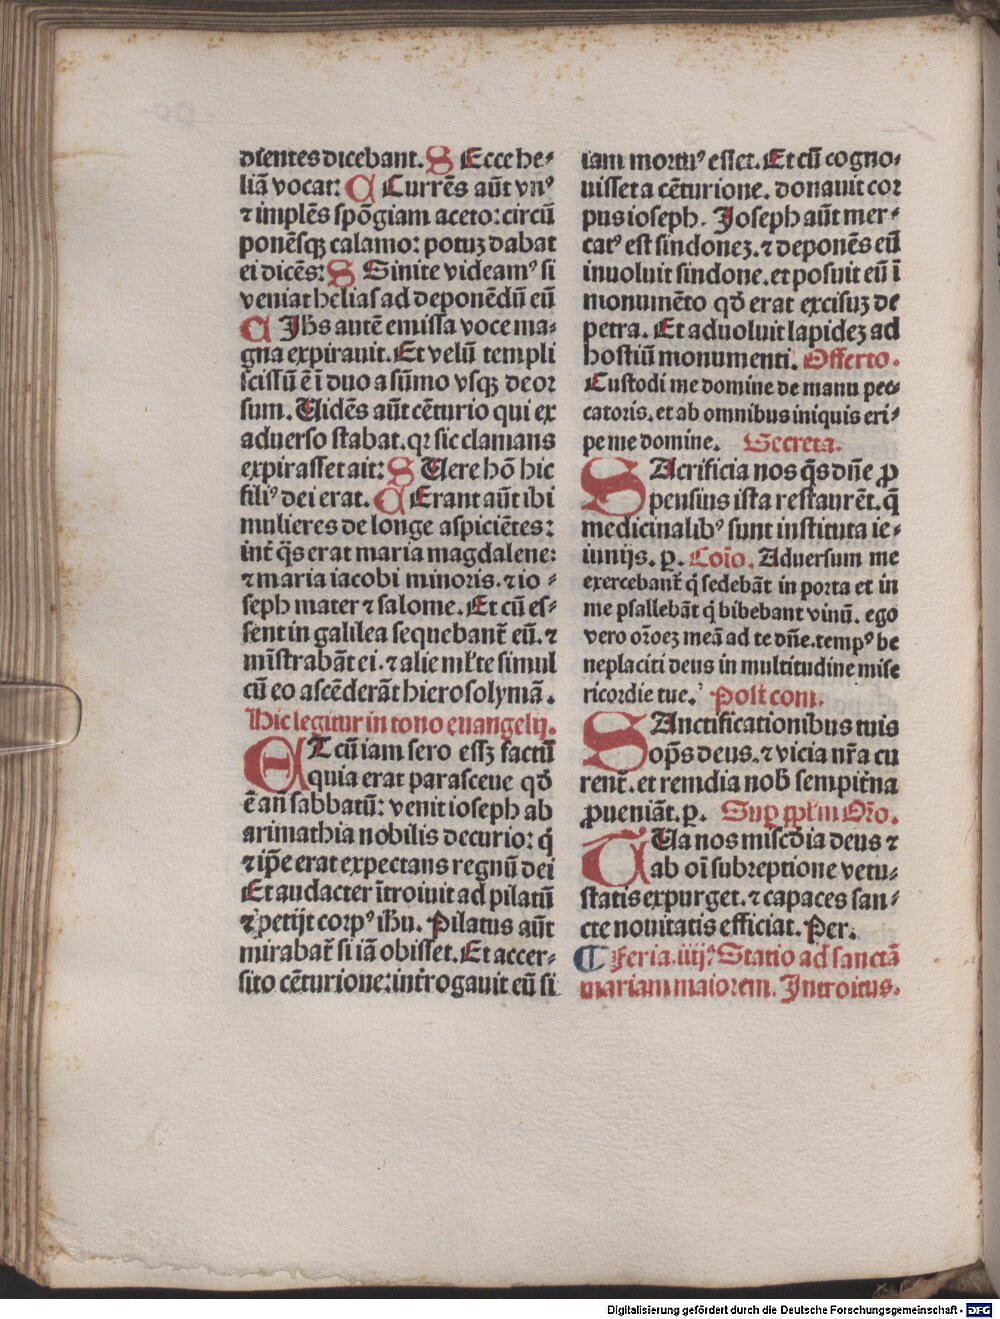 dientes dicebant. S Ecce he⸗
liā vocat: C Currēs aūt vnꝰ
⁊ implēs spōgiam aceto: circū
ponēsqꝫ calamo: potuꝫ dabat
ei dicēs: S Sinite videamꝰ si
veniat helias ad deponēdū eū
C Jh̄s autē emissa voce ma⸗
gna expirauit. Et velū templi
scissū ē ī duo a sūmo vsqꝫ deor
sum. Uidēs aūt cēturio qui ex
aduerso stabat. qꝛ sic clamans
expirasset ait: S Uere hō hic
filiꝰ dei erat. C Erant aūt ibi
mulieres de longe aspiciētes:
int̄ q̄s erat maria magdalene:
⁊ maria iacobi minoris. ⁊ io⸗
seph mater ⁊ salome. Et cū es⸗
sent in galilea sequebant̄ eū. ⁊
mīstrabāt ei. ⁊ alie ml̄te simul
cū eo ascēderāt hierosolymā.
Hic legitur in tono euangelij.
ET cū iam sero essꝫ factū
quia erat parasceue qđ
ē an̄ sabbatū: venit ioseph ab
arimathia nobilis decurio: q̇
⁊ ip̄e erat expectans regnū dei
Et audacter ītroiuit ad pilatū
⁊ petijt corpꝰ ih̄u. Pilatus aūt
mirabat̄ si iā obisset. Et accer⸗
sito cēturione: int̄rogauit eū si
iam mortuꝰ esset. Et cū cogno⸗
uisset a cēturione. donauit cor
pus ioseph. Joseph aūt mer⸗
catꝰ est sindoneꝫ. ⁊ deponēs eū
inuoluit sindone. et posuit eū ī
monumēto qđ erat excisuꝫ de
petra. Et aduoluit lapideꝫ ad
hostiū monumenti. Offerto.
Custodi me domine de manu pec⸗
catoris. et ab omnibus iniquis eri⸗
pe me domine. Secreta.
SAcrificia nos q̄s dn̄e ꝓ
pensius ista restaurēt. q̄
medicinalibꝰ sunt instituta ie⸗
iunijs. p. Coīo. Aduersum me
exercebant̄ q̇ sedebāt in porta et in
me psallebāt q̇ bibebant vinū. ego
vero or̄oeꝫ meā ad te dn̄e. tempꝰ be
neplaciti deus in multitudine mise
ricordie tue. Post com.
SAnctificationibus tuis
op̄s deus. ⁊ vicia nr̄a cu
rent̄. et remdia nob̄ sempit̄na
ꝓueniāt. p. Suꝑ pp̄lm Or̄o.
TUa nos misc̄dia deus ⁊
ab oī subreptione vetu⸗
statis expurget. ⁊ capaces san⸗
cte nouitatis efficiat. Per.
C Feria. iiij. Statio ad sanctā
mariam maiorem. Introitus.
Digitalisierung gefördert durch die Deutsche Forschungsgemeinschaft - DFG